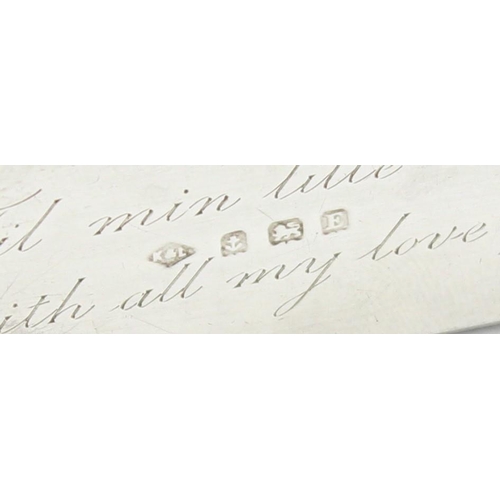 Til min lille
K&L E
with all my love